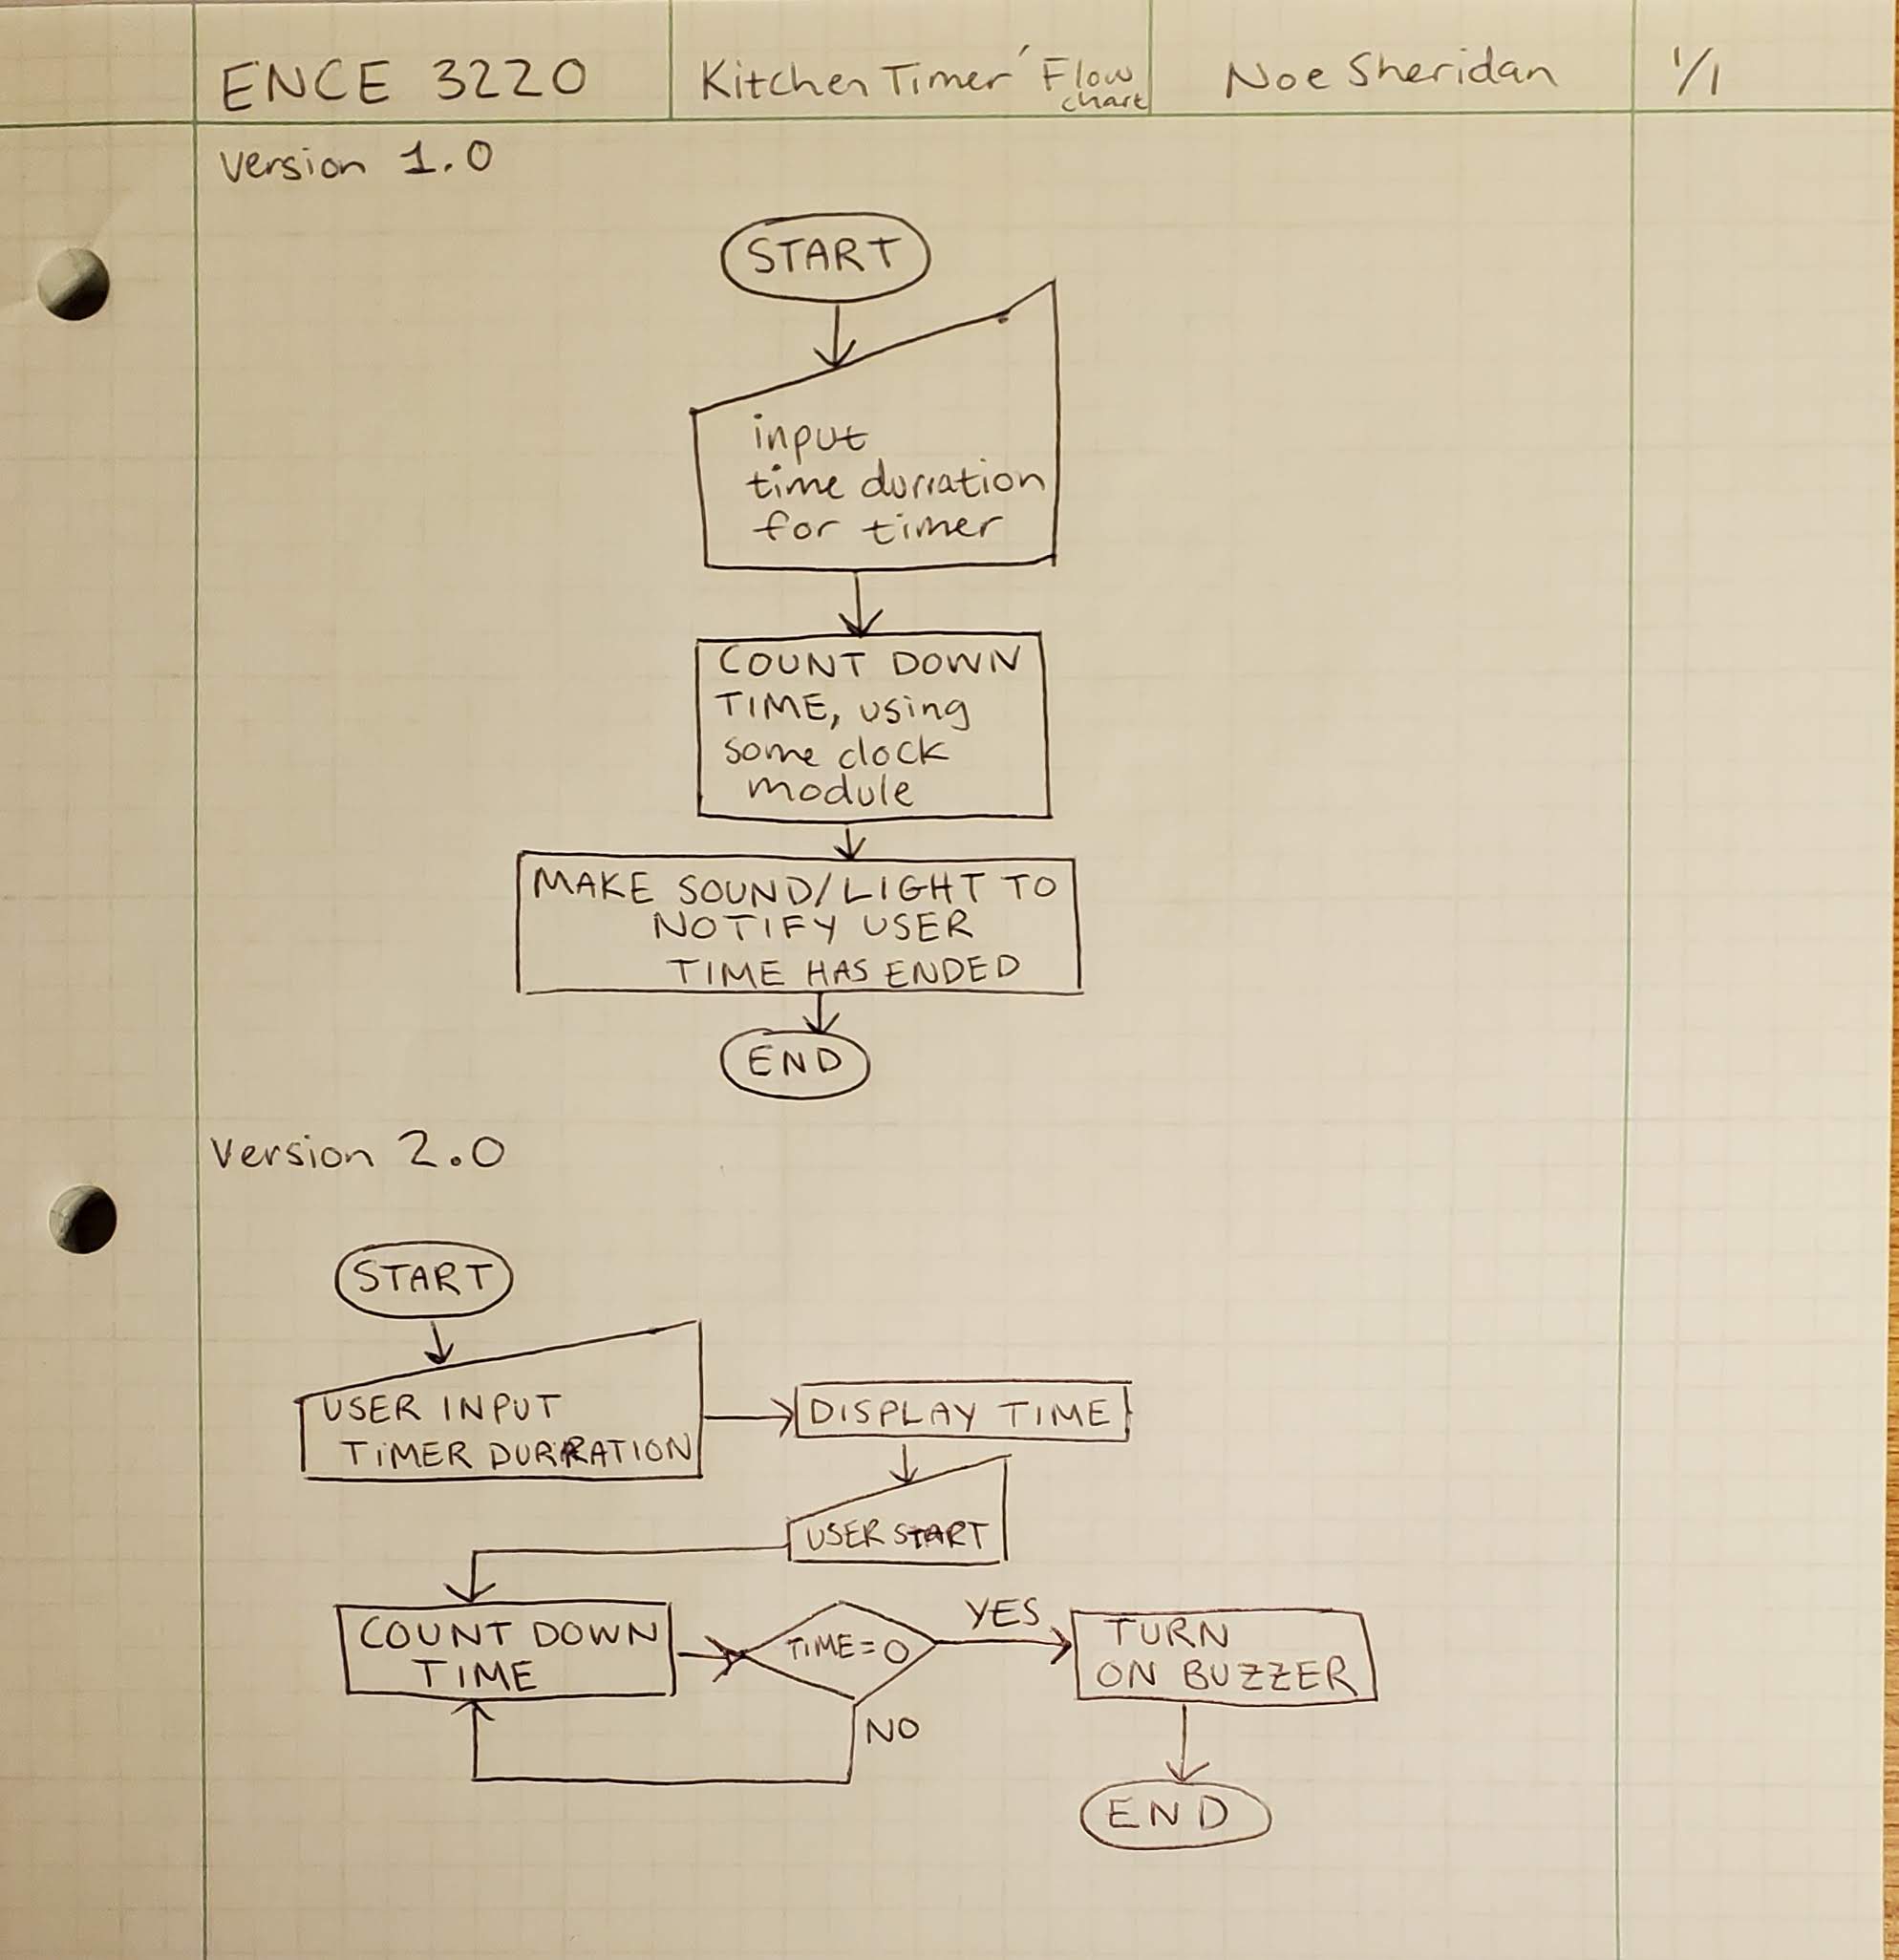 ENCE 3220
Kitchen Timer Flow
chart
Noe Sheridan
1/1
Version 1.0
START
input
time durration
for timer
COUNT DOWN
TIME, using
some clock
module
MAKE SOUND/LIGHT TO
NOTIFY USER
TIME HAS ENDED
END
Version 2.0
START
USER INPUT
TIMER DURRATION
DISPLAY TIME
USER START
COUNT DOWN
TIME
TIME=0
YES
TURN
ON BUZZER
NO
END